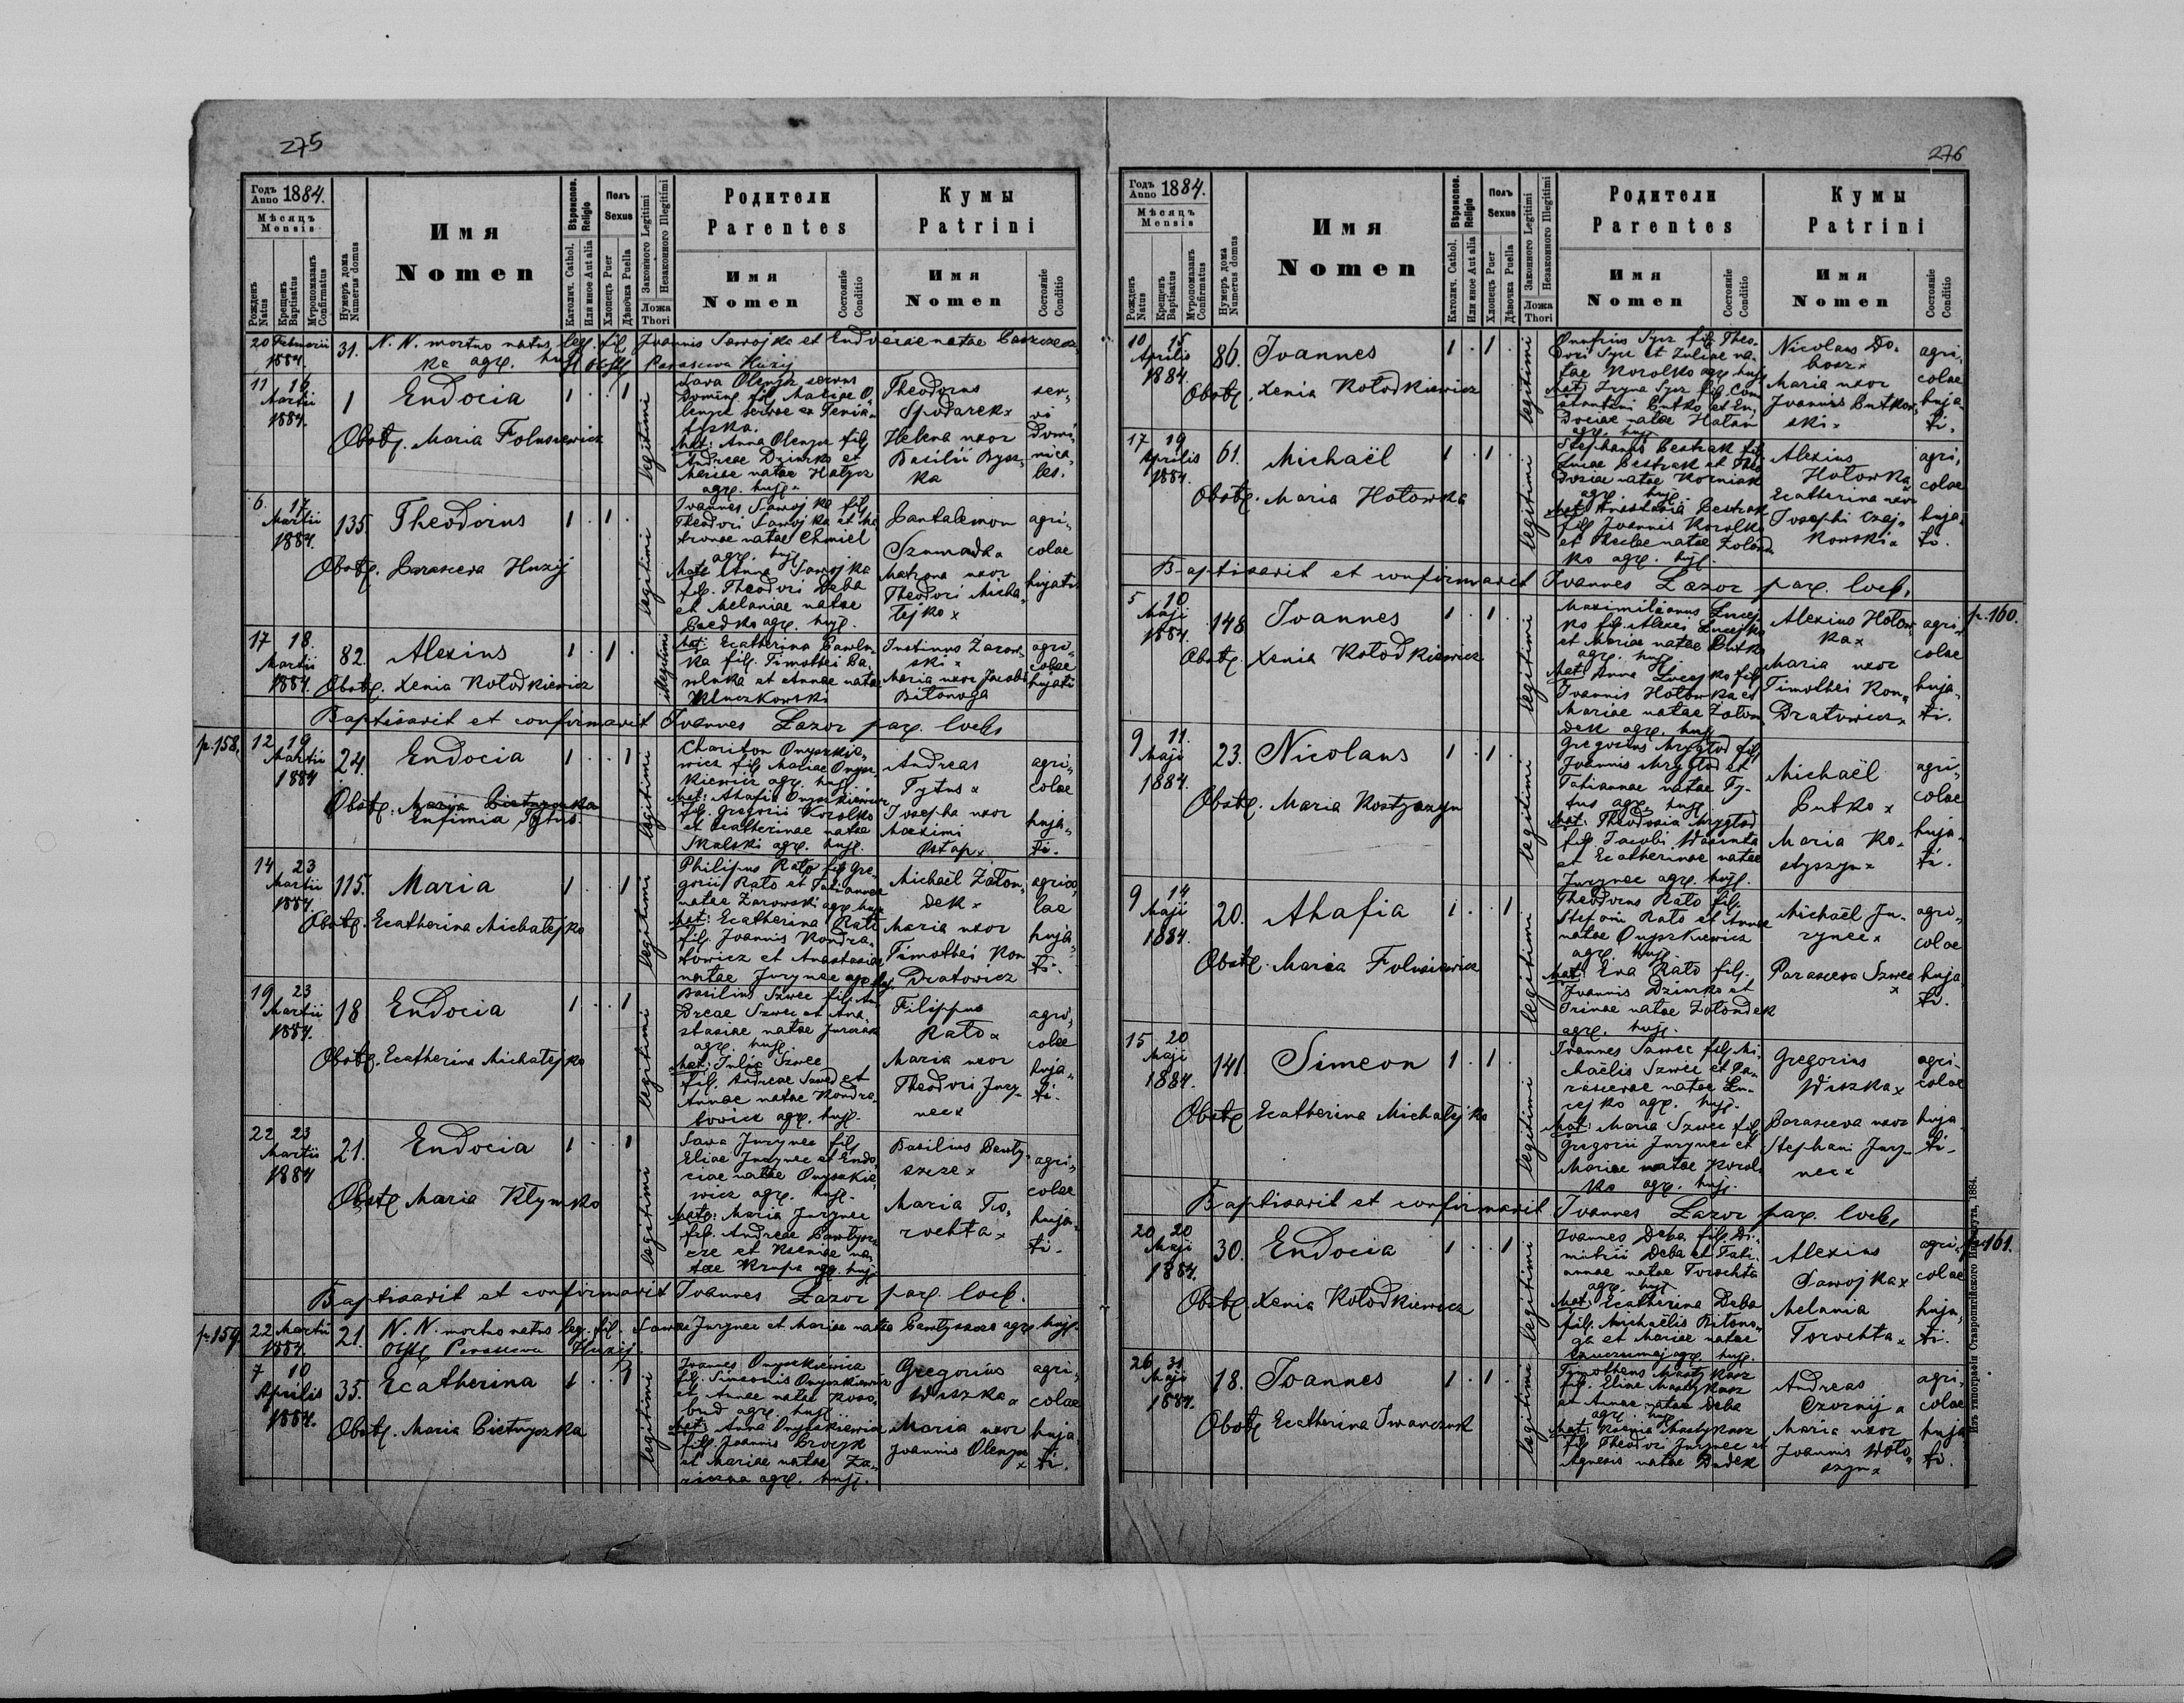 275
Годъ Anno 1884.
Мѣсяцъ Mensis
Рожденъ Natus
Крещенъ Baptisatus
Муропомазанъ Confirmatus
Нумеръ дома Numerus domus
Имя
Nomen
Вѣроиспов. Religio
Католич. Cathol.
Или иное Aut alia
Полъ
Sexus
Хлопецъ Puer
Дѣвочка Puella
Законного Legitimi
Незаконного Illegitimi
Ложа
Thori
Родители
Parentes
Имя
Nomen
Состояніе
Conditio
Кумы
Patrini
Имя
Nomen
Состояніе
Conditio
20 Februarii 1884. 31. N. N. mortuo natus leg. fil. Joannis Sawojka et Eudociae natae
ka agr. huj. Obst. Parasceva Huzij
11 16 Martii 1884. 1 Eudocia 1 . . 1 legitimi
Obst. Maria Folusiewicz
Sava Olenycz servus
domin. fil. Mariae O-
lenycz servae ex Tenia-
tyska.
Mat: Anna Olenycz fil.
Andreae Dziurko et
Mariae natae Hałycz
agr. huj.
Theodorus
Spodarek x
Helena uxor
Basilii Bysz-
ka
ser-
vi
domi-
nica-
les.
6. 17 Martii 1884. 135. Theodorus 1 . 1 . legitimi
Obst. Parasceva Huzij
Joannes Sawojka fil.
Theodori Sawojka et Ma
tronae natae Chmiel
agr. huj.
Mat: Anna Sawojka
fil. Theodori Deba
et Melaniae natae
Fedko agr. huj.
Pantalemon
Szumada x
Matrona uxor
Theodori Micha-
łejko x
agri-
colae
hujati
17 18. Martii 1884. 82. Alexius 1 . 1 . illegitimi
Obst. Xenia Kołodkiewicz
Mat: Ecatherina Pawlu-
ka fil. Timothei Pa-
wluka et Annae natae
Kluczkowski
Justinus Żarow-
ski x
Maria uxor Jacobi
Biłonoga
agri-
colae
hujati
Baptisavit et confirmavit Joannes Lazor par. loc.
p. 158. 12 19 Martii 1884 24. Eudocia 1 . . 1 legitimi
Obst. Maria Pietryszka
Eufimia Tytus.
Chariton Onyszkie-
wicz fil. Mariae Onysz-
kiewicz agr. huj.
Mat: Ahafia Onyszkiewicz
fil. Gregorii Korolko
et Ecatherinae natae
Skalski agr. huj.
Andreas
Tytus x
Josepha uxor
Maximi
Ostap x
agri-
colae
huja-
ti.
14 23 Martii 1884. 115. Maria 1 . . 1 legitimi
Obst. Ecatherina Michałejko
Philippus Rato fil. Gre-
gorii Rato et Tatiannae
natae Żarowski agr. huj.
Mat: Ecatherina Rato
fil. Joannis Kondra-
towicz et Anastasiae
natae Jurynec agr. huj.
Michaël Żołon-
dek x
Maria uxor
Timothei Kon
dratowicz
agrico-
lae
huja-
ti.
19 23 Martii 1884. 18 Eudocia 1 . . 1 legitimi
Obst. Ecatherina Michałejko
Basilius Szwec fil. An-
dreae Szwec et Ana-
stasiae natae Jurczak
agr. huj.
Mat: Julia Szwec
fil. Andreae Szwed et
Annae natae Kondra-
towicz agr. huj.
Filippus
Rato x
Maria uxor
Theodori Jury-
nec x
agri-
colae
huja-
ti.
22 23 Martii 1884 21. Eudocia 1 . . 1 legitimi
Obst. Maria Kłymko
Sawa Jurynec fil.
Eliae Jurynec et Eudo-
ciae natae Onyszkie-
wicz agr. huj.
Mat: Maria Jurynec
fil. Andreae Pawtysz
cze et Kseniae na-
tae Krupa agr. huj.
Basilius Penty-
szcze x
Maria To-
rochta x
agri-
colae
huja-
ti.
Baptisavit et confirmavit Joannes Lazor par. loc.
p. 159. 22 Martii 1884. 21. N. N. mortuo natus leg. fil. Sawae Jurynec et Mariae natae Pentyszcze agr. huj.
Obst. Parasceva Huzij.
7 10 Aprilis 1884. 35. Ecatherina 1 . . 1 legitimi
Obst. Maria Pietryszka
Joannes Onyszkiewicz
fil. Simeonis Onyszkiewicz
et Annae natae Koso-
bud agr. huj.
Mat: Anna Onyszkiewicz
fil. Joannis Brocyk
et Mariae natae Za-
riczna agr. huj.
Gregorius
Wiszka x
Maria uxor
Joannis Olenycz x
agri-
colae
huja
ti.
276
Годъ Anno 1884.
Мѣсяцъ Mensis
Рожденъ Natus
Крещенъ Baptisatus
Муропомазанъ Confirmatus
Нумеръ дома Numerus domus
Имя
Nomen
Вѣроиспов. Religio
Католич. Cathol.
Или иное Aut alia
Полъ
Sexus
Хлопецъ Puer
Дѣвочка Puella
Законного Legitimi
Незаконного Illegitimi
Ложа
Thori
Родители
Parentes
Имя
Nomen
Состояніе
Conditio
Кумы
Patrini
Имя
Nomen
Состояніе
Conditio
10 15 Aprilis 1884. 86. Joannes 1 . 1 . legitimi
Obst. Xenia Kołodkiewicz
Onufrius Sycz fil. Theo-
dori Sycz et Juliae na-
tae Korolko agr. huj.
Mat: Iryna Sycz fil. Con
stantini Butko et Eu-
dociae natae Hałan
agr. huj.
Nicolaus Do-
bosz x
Maria uxor
Joannis Butkow-
ski x
agri-
colae
huja-
ti.
17 19 Aprilis 1884. 61. Michaël 1 . 1 . legitimi
Obst. Maria Hołowka
Stephanus Pestrak fil.
Lucae Pestrak et Theo
dosiae natae Korniak
agr. huj.
Mat: Anastasia Pestrak
fil. Joannis Korolko
et Theclae natae Żołon-
ko agr. huj.
Alexius
Hołowka
Ecatherina uxor
Josephi Czaj-
kowski x
agri-
colae
huja-
ti.
Baptisavit et confirmavit Joannes Lazor par. loc.
5 10 Maji 1884. 148 Joannes 1 . 1 . legitimi p. 160.
Obst. Xenia Kołodkiewicz
Maximilianus Lucej-
ko fil. Alexii Lucejko
et Mariae natae Butko
agr. huj.
Mat: Anna Lucejko fil.
Joannis Hołowka et
Mariae natae Żołon
dek agr. huj.
Alexius Hołow-
ka x
Maria uxor
Timothei Kon-
dratowicz x
agri-
colae
huja-
ti.
9 11. Maji 1884. 23. Nicolaus 1 . 1 . legitimi
Obst. Maria Kostyszyn
Gregorius Mrygłod fil.
Joannis Mrygłod et
Tatiannae natae Ty-
tus agr. huj.
Mat: Theodosia Mrygłod
fil. Jacobi Wasiuta
et Ecatherinae natae
Jurynec agr. huj.
Michaël
Butko x
Maria Ko-
styszyn x
agri-
colae
huja-
ti.
9 14 Maji 1884. 20. Ahafia 1 . . 1 legitimi
Obst. Maria Folusiewicz
Theodorus Rato fil.
Stefani Rato et Annae
natae Onyszkiewicz
agr. huj.
Mat: Eva Rato fil.
Joannis Dziurko et
Irinae natae Żołondek
agr. huj.
Michaël Ju-
rynec x
Parasceva Szwec x
agri-
colae
huja
ti.
15 20 Maji 1884. 141. Simeon 1 . 1 . legitimi
Obst. Ecatherina Michałejko
Joannes Szwec fil. Mi-
chaëlis Szwec et Pa-
rascevae natae Lu-
cejko agr. huj.
Mat: Maria Szwec fil.
Gregorii Jurynec et
Mariae natae Korol-
ko agr. huj.
Gregorius
Wiszka x
Parasceva uxor
Stephani Jury-
nec x
agri-
colae
huja-
ti-
Baptisavit et confirmavit Joannes Lazor par. loc.
20 20 Maji 1884. 30. Eudocia 1 . . 1 legitimi p. 161.
Obst. Xenia Kołodkiewicz
Joannes Deba fil. Di-
mitrii Deba et Tati-
annae natae Torochta
agr. huj.
Mat: Ecatherina Deba
fil. Michaëlis Biłono-
ga et Mariae natae
agr. huj.
Alexius
Sawojka x
Melania
Torochta x
agri-
colae
huja-
ti.
26 31 Maji 1884. 18. Joannes 1 . 1 . legitimi
Obst. Ecatherina Iwanczuk
Timotheus Mastykasz
fil. Eliae Mastykasz
et Annae natae Deba
agr. huj.
Mat: Ksenia Mastykasz
fil. Theodori Jurynec et
Agnesis natae Dudek
Andreas
Czornij x
Maria uxor
Joannis Woło-
szyn x
agri-
colae
huja-
ti.
Изъ типографіи Ставропигійского Института, 1884.